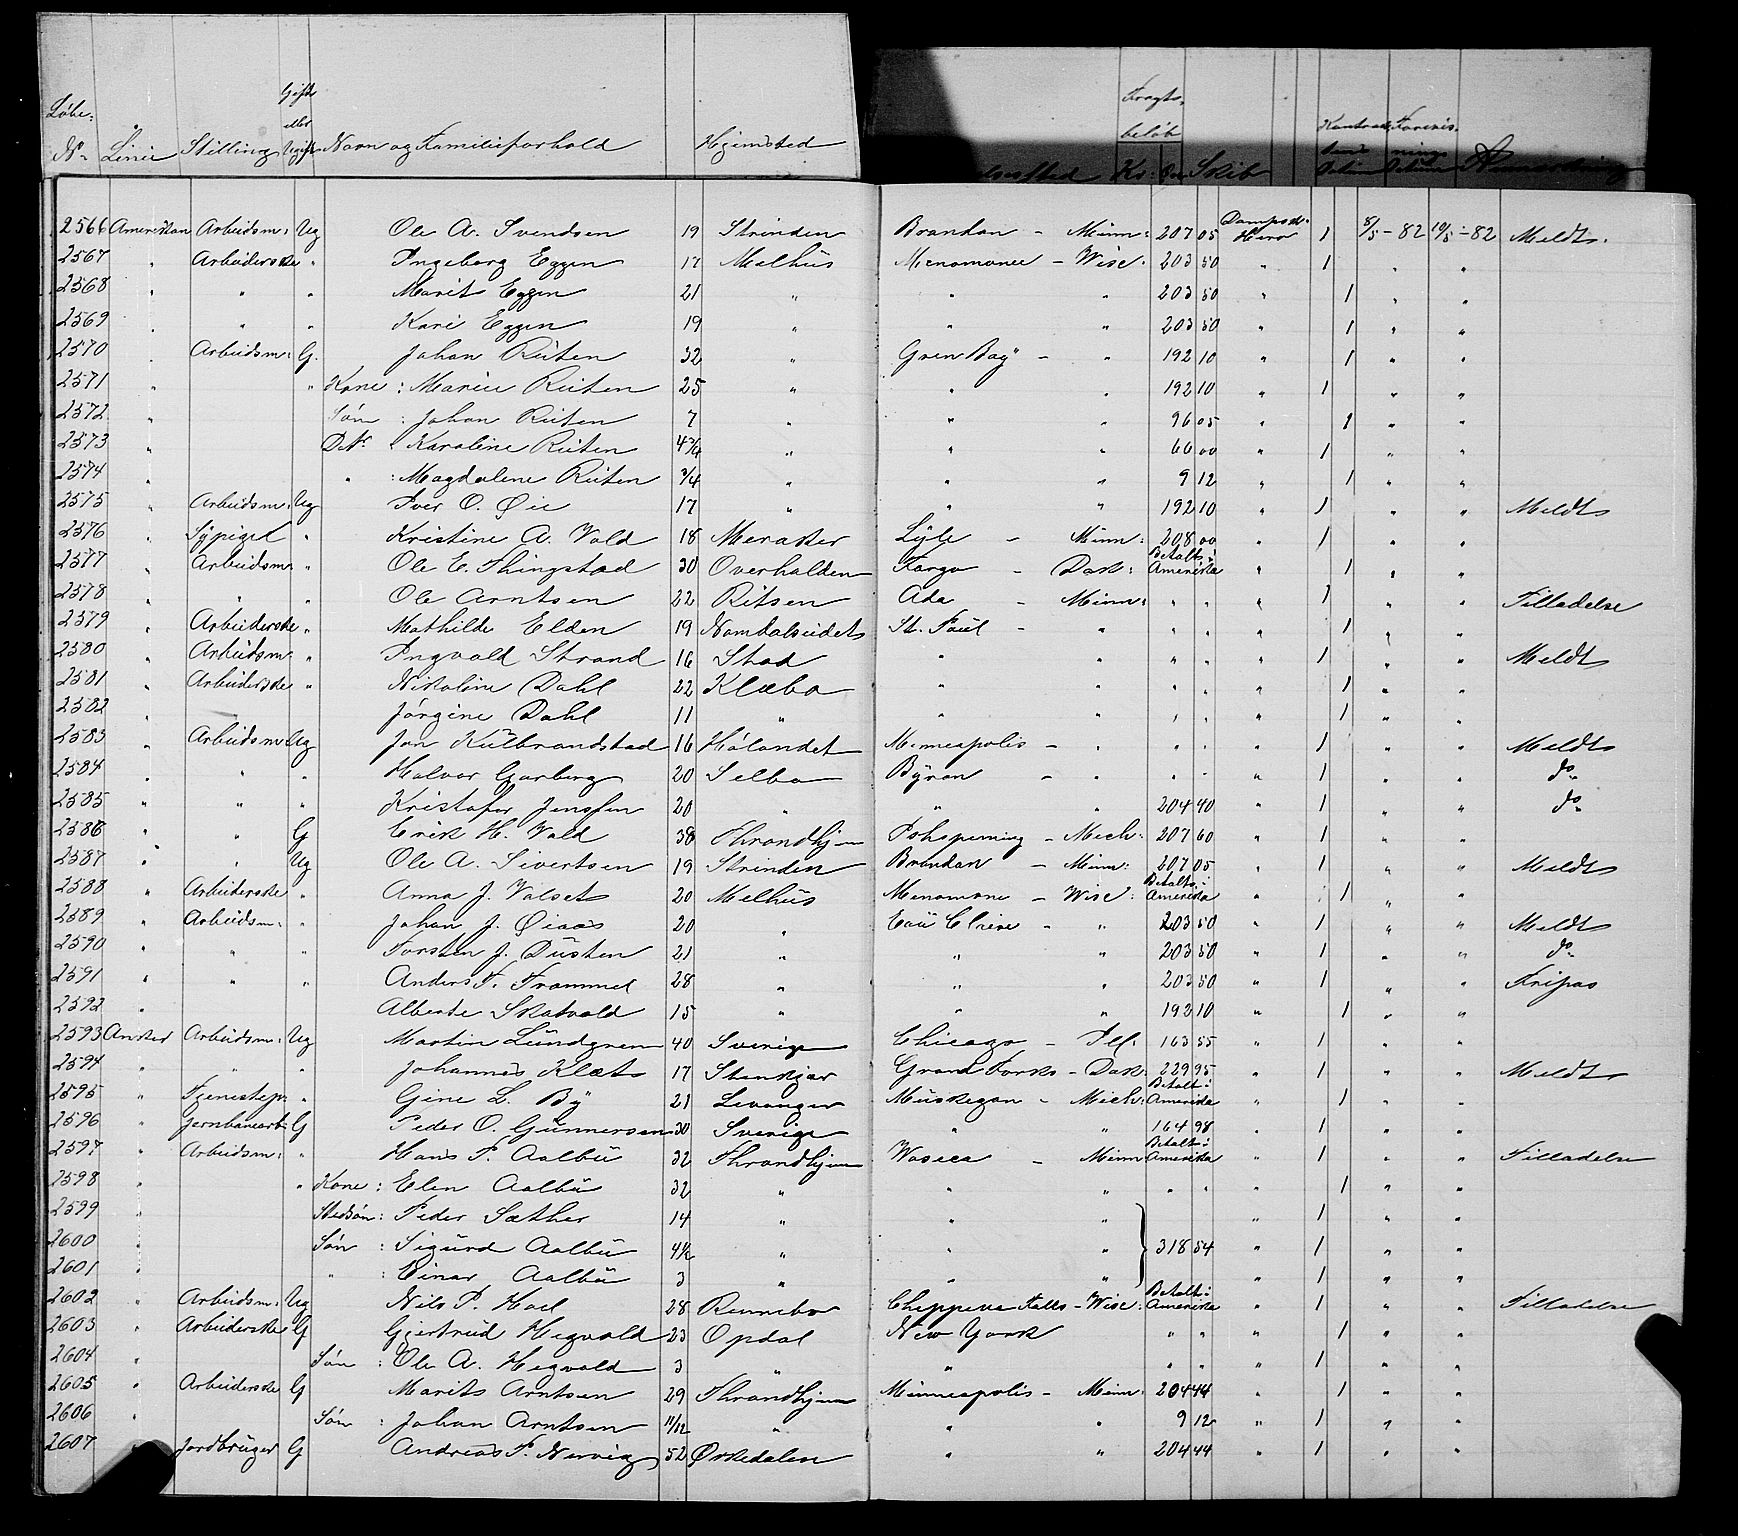 Løbe- N° Linie Stilling Gift eller Ugift Navn og Familieforhold Hjemsted Fragtbeløb Kr: Skib Anmærkning
2566 Amerikan Arbeidsm: Ug Ole A. Svendsen 19 Strinden Brandon - Minn: 207 05 Dampsk: Hero 1 8/5 - 82 10/5 - 82 Meldt.
2567 " Arbeiderske " Ingeborg Eggen 17 Melhus Menomonee - Wisc. 203 50 " 1 " "
2568 " " " Marit Eggen 21 " " " 203 50 " 1 " "
2569 " " " Kari Eggen 19 " " " 203 50 " 1 " "
2570 " Arbeidsm: G. Johan Riiten 32 " Gren Bay - " 192 10 " 1 " "
2571 " " Kone : Marie Riiten 25 " " " 192 10 " 1 " "
2572 " Søn : Johan Riiten 7 " " " 96 05 " 1 " "
2573 " Dtr : Karoline Riiten 4 3/4 " " " 66 00 " 1 " "
2574 " " : Magdalene Riiten 3/4 " " " 9 12 " 1 " "
2575 " Arbeidsm: Ug Iver O. Øie 17 " " " 192 10 " 1 " " Meldt
2576 " Sypiget " Kristine A. Vold 18 Meraker Lyle - Minn: 208 00 " 1 " "
2577 " Arbeidsm " Ole E. Thingstad 30 Overhalden Fargo - Dak: Betalt i Amerika " 1 " "
2578 " " " Ole Arntsen 22 Ritsen Ada - Minn: " " " 1 " " Tilladelse
2579 " Arbeiderske " Mathilde Elden 19 Namdalseidet St. Paul - " " " " 1 " "
2580 " Arbeidsm " Ingvald Strand 16 Stod " " " " " 1 " " Meldt
2581 " Arbeiderske " Nikoline Dahl 22 Klæbo " " " " " 1 " "
2582 " " Jørgine Dahl 11 " " " " " " 1 " "
2583 " Arbeidsm Ug Jon Kulbrandstad 16 Hølandet Minneapolis - " " " " 1 " " Meldt
2584 " " " Halvor Garberg 20 Selbo Byron - " " " " 1 " " do
2585 " " " Kristofer Jenssen 20 " " " 204 40 " 1 " " do
2586 " " G Erik H. Vold 38 Throndhjem Ishspeming - Mich: 207 60 " 1 " "
2587 " " Ug Ole A. Sivertsen 19 Strinden Brandon - Minn: 207 05 " 1 " " Meldt
2588 " Arbeiderske " Anna J. Valset 20 Melhus Menomone - Wisc: Betalt i Amerika " 1 " "
2589 " Arbeidsm: " Johan J. Øiaas 20 " Eau Claire - " 203 50 " 1 " " Meldt
2590 " " " Torsten J. Dusten 21 " " " 203 50 " 1 " " do
2591 " " " Anders T. Trammel 28 " " " 203 50 " 1 " " Fripas
2592 " Alberte Skatvold 15 " " " 192 10 " 1 " "
2593 Anker Arbeidsm: Ug Martin Lundgren 40 Sverige Chicago - Ill: 163 55 " 1 " "
2594 " " " Johannes Klæt 17 Stenkjær Grand Forks - Dak: 229 95 " 1 " " Meldt
2595 " Tjenestep. " Gine L. By 21 Levanger Muskegon - Mich: Betalt i Amerika " 1 " "
2596 " Jernbanearb: G Peder O. Gunnersen 30 Sverige " " 164 98 " 1 " "
2597 " Arbeidsm: " Hans P. Aalbu 32 Throndhjem Waseca - Minn Betalt i Amerika " 1 " " Tilladelse
2598 " " Kone : Elen Aalbu 32 " " " " " " 1 " "
2599 " Stedsøn : Peder Sæther 14 " " " " 1 " "
2600 " Søn : Sigurd Aalbu 4 1/2 " " " 318 54 " 1 " "
2601 " " : Einar Aalbu 3 " " " " 1 " "
2602 " Arbeidsm: Ug Nils P. Hoel 28 Rennebo Chippeva Falls - Wisc: Betalt i Amerika " 1 " " Tilladelse
2603 " Arbeiderske G Gjertrud Hegvold 23 Opdal New York " " " 1 " "
2604 " Søn : Ole A. Hegvold 3 " " " " " 1 " "
2605 " Arbeiderske G Marit Arntsen 29 Throndhjem Minneapolis - Minn: 204 44 " 1 " "
2606 " Søn : Johan Arntsen 11/12 " " " 9 12 " 1 " "
2607 " Jordbruger G Andreas P. Nervig 52 Ørkedalen " " 204 44 " 1 " "